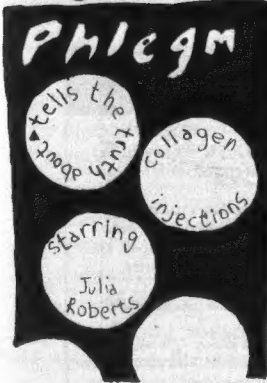 Phlegm
tells the truth about
collagen
injections
starring
Julia
Roberts